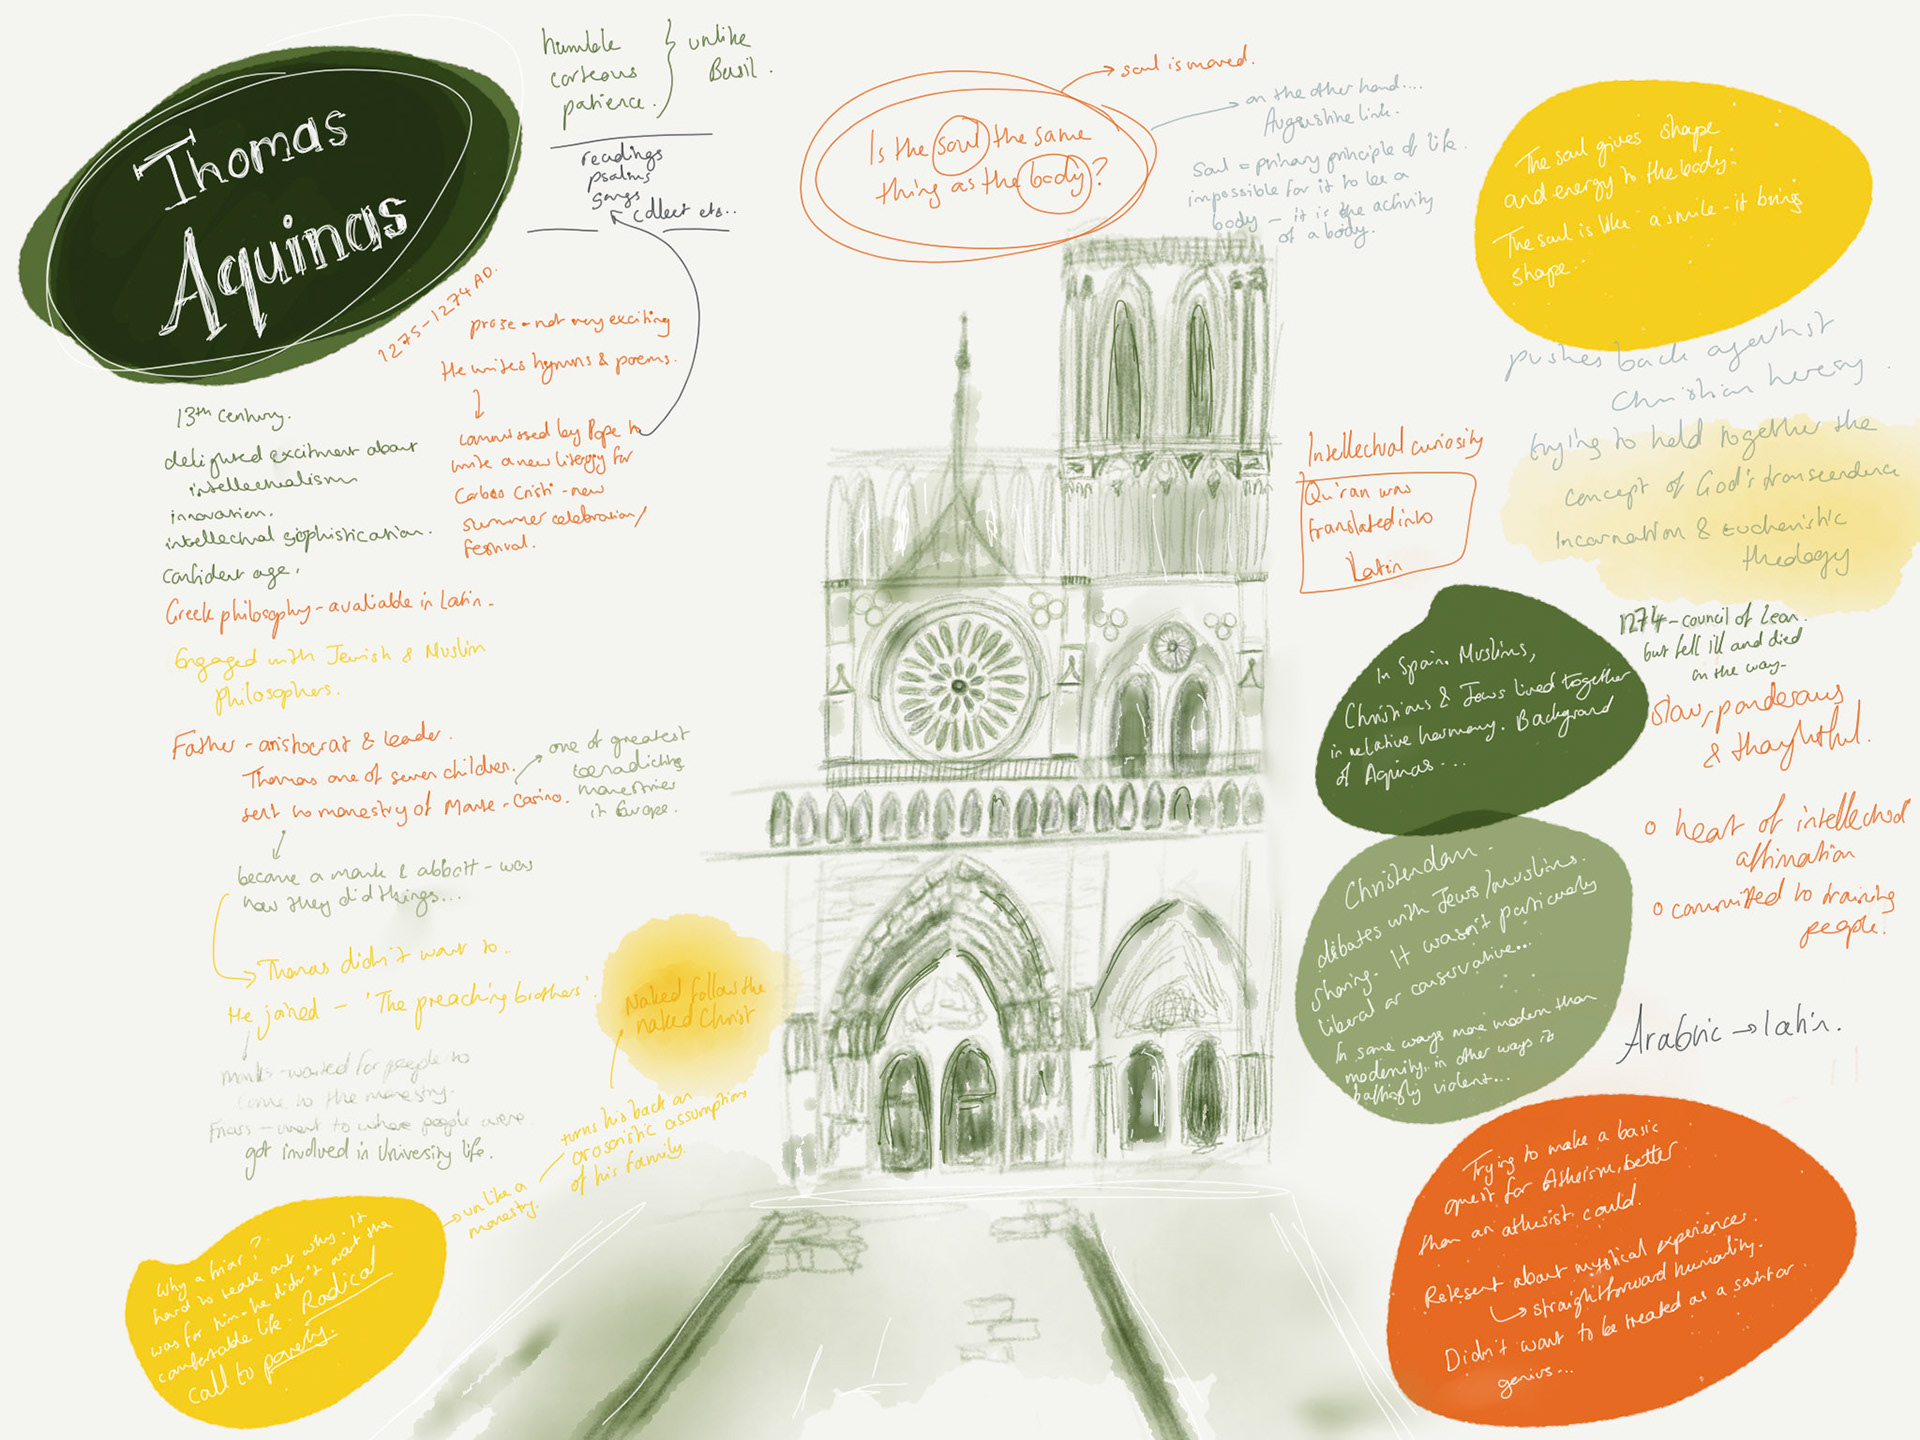 Thomas
Aquinas
1225-1274 AD.
humble
corteous
patience.
unlike
Basil.
readings
psalms
songs
collect etc..
prose - not very exciting
He writes hymns & poems.
commissed by Pope to
write a new litergy for
Corbus Cristi - new
summer celebration/
festival.
13th century.
delighted excitment about
intellectualism
innovation.
intellectual sophistication.
confident age.
Greek philosophy - avaliable in Latin.
Engaged with Jewish & Muslim
philosophers.
Father - aristocrat & leader.
Thomas one of seven children.
sent to monestry of Monte-Casino.
one of greatest
benadicting
monestries
in Europe.
became a monk & abbott - was
how they did things...
Thomas didn't want to..
He joined - 'The preaching brothers'.
monks - waited for people to
come to the monestry.
Friars - went to where people were.
got involved in University life.
Naked follow the
naked Christ
turns his back on
arosoristic assumptions
of his family.
unlike a
monestry.
Why a friar?
hard to tease out why. It
was for him - he didn't want the
comfortable life. Radical
call to poverty.
Is the soul the same
thing as the body?
soul is moved.
on the other hand....
Augustine link.
Soul = primary principle of life.
impossible for it to be a
body - it is the activity
of a body.
The soul gives shape
and energy to the body.
The soul is like a smile - it brings
shape..
pushes back against
Christian heresy.
trying to hold together the
concept of God's transcendence
Incarnation & Eucharistic
theology
Intellectual curiosity
Qu'ran was
translated into
Latin
1274 - council of Leon.
but fell ill and died
on the way.
In Spain. Muslims,
Christians & Jews lived together
in relative harmony. Background
of Aquinas...
Slow, ponderous
& thoughtful.
heart of intellectual
affirmation
committed to training
people.
Christendom.
debates with Jews/muslims.
sharing. It wasn't particularly
liberal or conservative...
In some ways more modern than
modernity, in other ways its
bafflingly violent...
Arabic → latin.
Trying to make a basic
quest for Atheism, better
than an atheist could.
Retesent about mystical experiences.
straightforward humanity.
Didn't want to be treated as a saint or
genius...